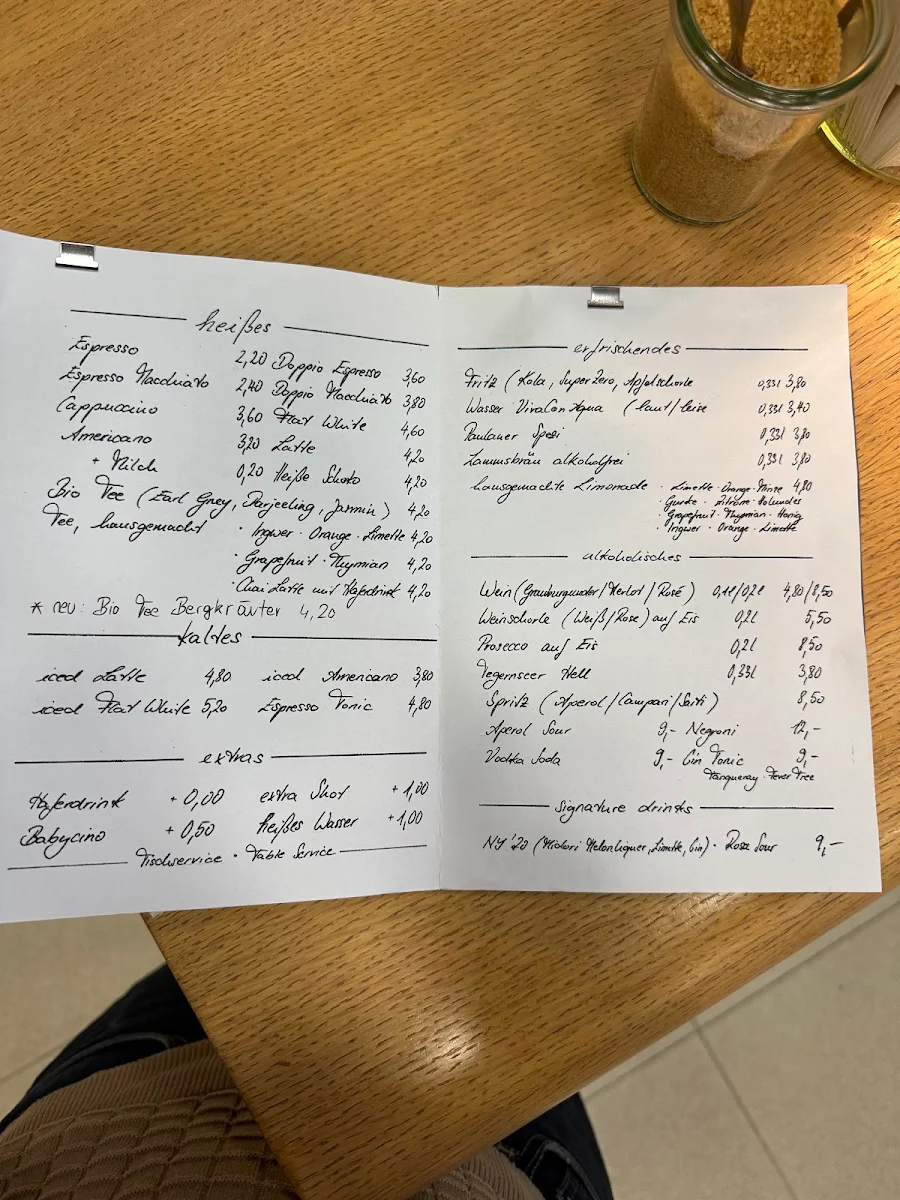 heißes
Espresso 2,20 Doppio Espresso 3,60
Espresso Macchiato 2,40 Doppio Macchiato 3,80
Cappuccino 3,60 Flat White 4,60
Americano 3,20 Latte 4,20
+ Milch 0,20 Heiße Schoko 4,20
Bio Tee (Earl Grey, Darjeeling, Jasmin) 4,20
Tee, hausgemacht · Ingwer · Orange · Limette 4,20
· Grapefruit · Thymian 4,20
· Chai Latte mit Haferdrink 4,20
* neu: Bio Tee Bergkräuter 4,20
kaltes
iced Latte 4,80 iced Americano 3,80
iced Flat White 5,20 Espresso Tonic 4,80
extras
Haferdrink + 0,00 extra Shot + 1,00
Babycino + 0,50 heißes Wasser + 1,00
Tischservice · Table Service
erfrischendes
Fritz (Kola, Super Zero, Apfelschorle 0,33l 3,80
Wasser VivaConAqua (laut/leise 0,33l 3,40
Paulaner Spezi 0,33l 3,80
Lammsbräu alkoholfrei 0,33l 3,80
hausgemachte Limonade · Limette · Orange · Minze 4,80
· Gurke · Zitrone · Holunder
· Grapefruit · Thymian · Honig
· Ingwer · Orange · Limette
alkoholisches
Wein (Grauburgunder/Merlot/Rosé) 0,1l/0,2l 4,80/8,50
Weinschorle (Weiß/Rosé) auf Eis 0,2l 5,50
Prosecco auf Eis 0,2l 8,50
Tegernseer Hell 0,33l 3,80
Spritz (Aperol/Campari/Sarti) 8,50
Aperol Sour 9,- Negroni 12,-
Vodka Soda 9,- Gin Tonic 9,-
Tanqueray · Fever Tree
signature drinks
NY '20 (Midori Melonliquer, Limette, Gin) · Rosa Sour 9,-